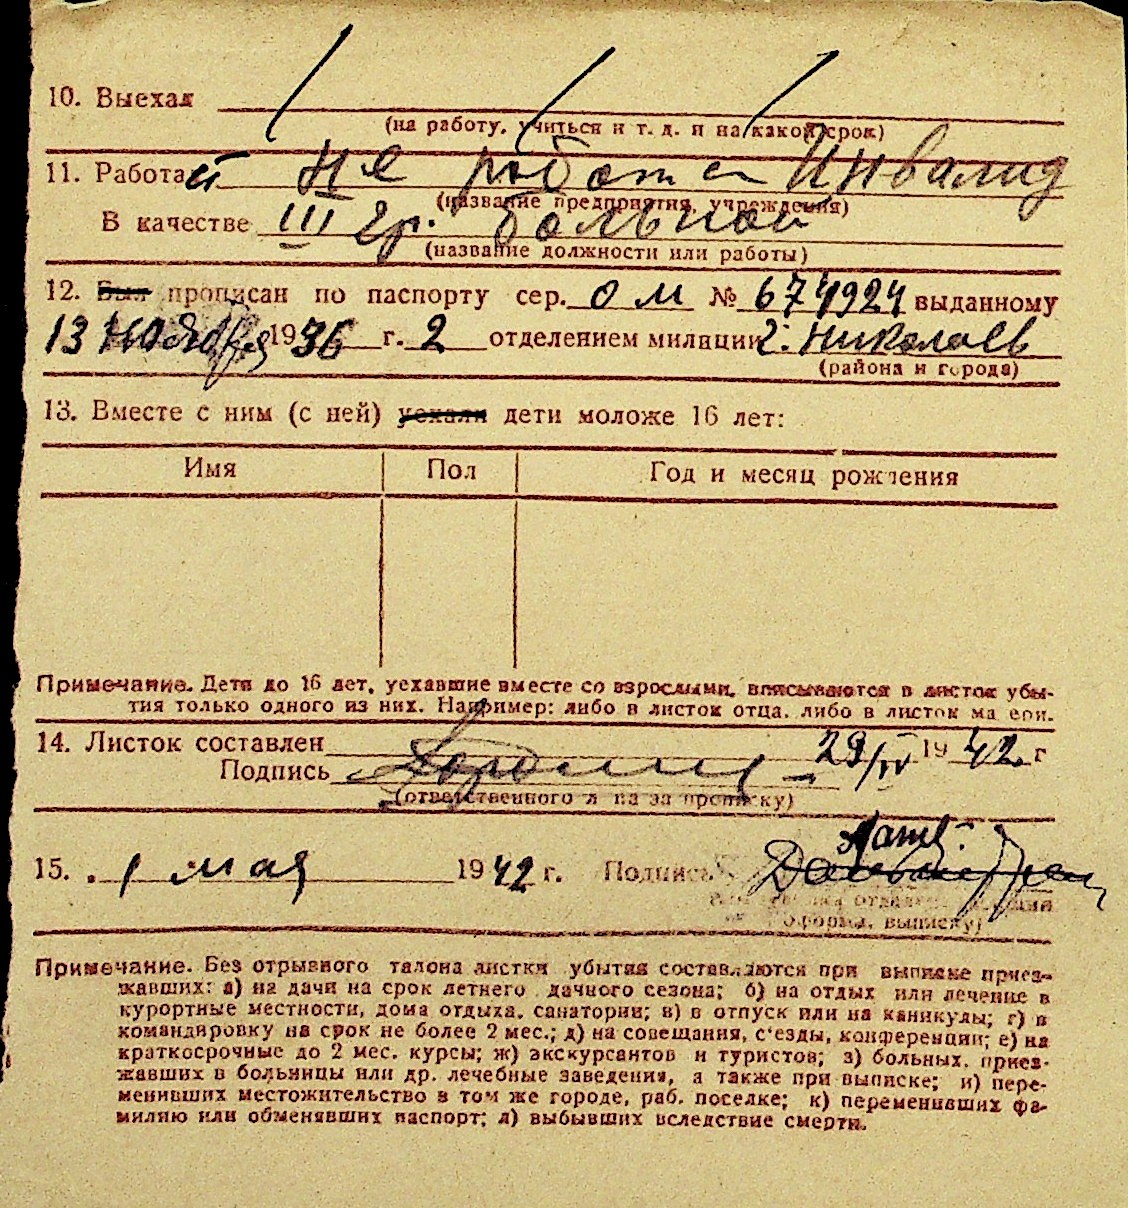 10. Выехал
(на работу, учиться и т. д. и на какой срок)
11. Работает не работает Инвалид
(название предприятия, учреждения)
В качестве III гр. больной
(название должности или работы)
12. Был прописан по паспорту сер. ОМ № 674924 выданному
13 Ноября 1936 г. 2 отделением милиции г. Николаев
(района и города)
13. Вместе с ним (с ней) уехали дети моложе 16 лет:
Имя Пол Год и месяц рождения
Примечание. Дети до 16 лет, уехавшие вместе со взрослыми, вписываются в листок убы-
тия только одного из них. Например: либо в листок отца, либо в листок матери.
14. Листок составлен 29/IV 1942 г
Подпись
(ответственного лица за прописку)
15. 1 мая 1942 г. Подпись
оформ. выписку)
Примечание. Без отрывного талона листки убытия составляются при выписке приез-
жавших: а) на дачи на срок летнего дачного сезона; б) на отдых или лечение в
курортные местности, дома отдыха, санатории; в) в отпуск или на каникулы; г) в
командировку на срок не более 2 мес.; д) на совещания, с'езды, конференции; е) на
краткосрочные до 2 мес. курсы; ж) экскурсантов и туристов; з) больных, приез-
жавших в больницы или др. лечебные заведения, а также при выписке; и) пере-
менивших местожительство в том же городе, раб. поселке; к) переменивших фа-
милию или обменявших паспорт; л) выбывших вследствие смерти.